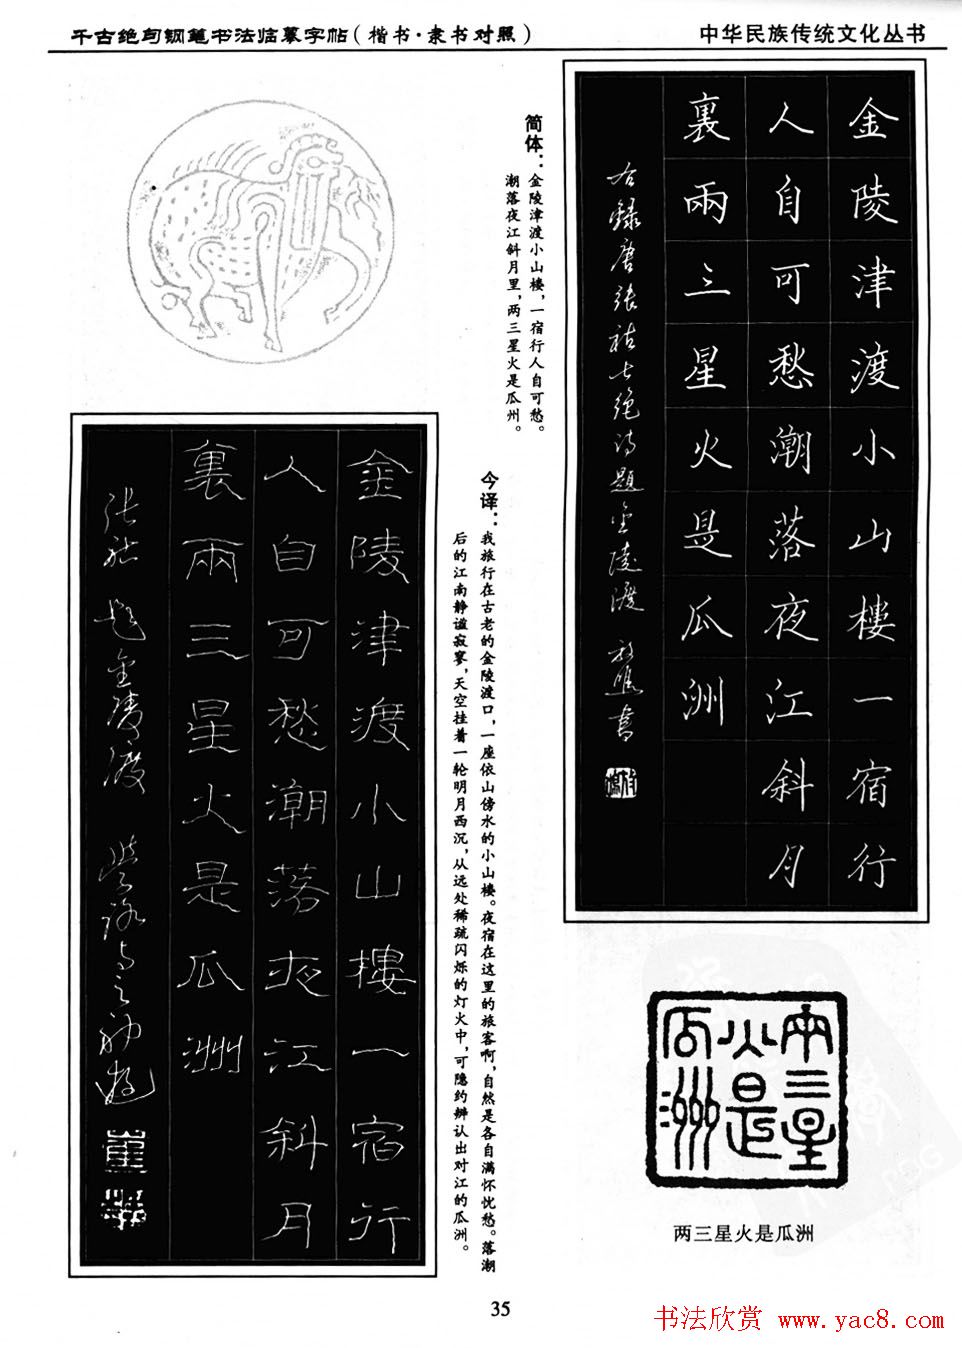 千古绝句钢笔书法临摹字帖(楷书·隶书对照)
中华民族传统文化丛书
金陵津渡小山樓一宿行
人自可愁潮落夜江斜月
裏兩三星火是瓜洲
右錄唐張祜七绝诗題金陵渡
書
简体:金陵津渡小山楼,一宿行人自可愁。
潮落夜江斜月里,两三星火是瓜州。
今译:我旅行在古老的金陵渡口,一座依山傍水的小山楼。夜宿在这里的旅客啊,自然是各自满怀忧愁。落潮
后的江南静谧寂寥,天空挂着一轮明月西沉,从远处稀疏闪烁的灯火中,可隐约辨认出对江的瓜洲。
金陵津渡小山樓一宿行
人自可愁潮落夜江斜月
裏兩三星火是瓜洲
張祜題金陵渡
兩三星火是瓜洲
两三星火是瓜洲
35
书法欣赏 www.yac8.com